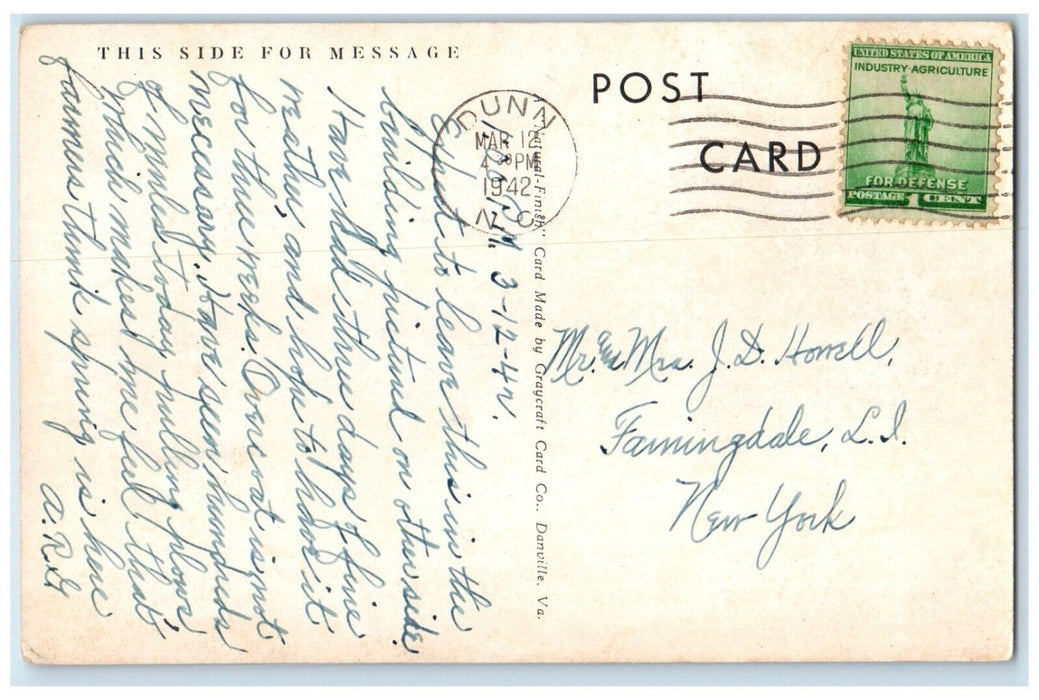 THIS SIDE FOR MESSAGE
3-12-42.
Expect to leave this in the
building pictured on other side.
Have had three days fine
weather and hope to have it
for three weeks. Overcoat is not
necessary. Have seen hundreds
of mules today pulling plows
which makes me feel that
farmers think spring is here
"Natural-Finish" Card Made by Graycraft Card Co., Danville, Va.
POST
CARD
DUNN
MAR 12
4 30 PM
1942
N.C.
UNITED STATES OF AMERICA
INDUSTRY·AGRICULTURE
FOR DEFENSE
POSTAGE 1 CENT
Mr. & Mrs. J. D. Howell,
Farmingdale, L.I.
New York